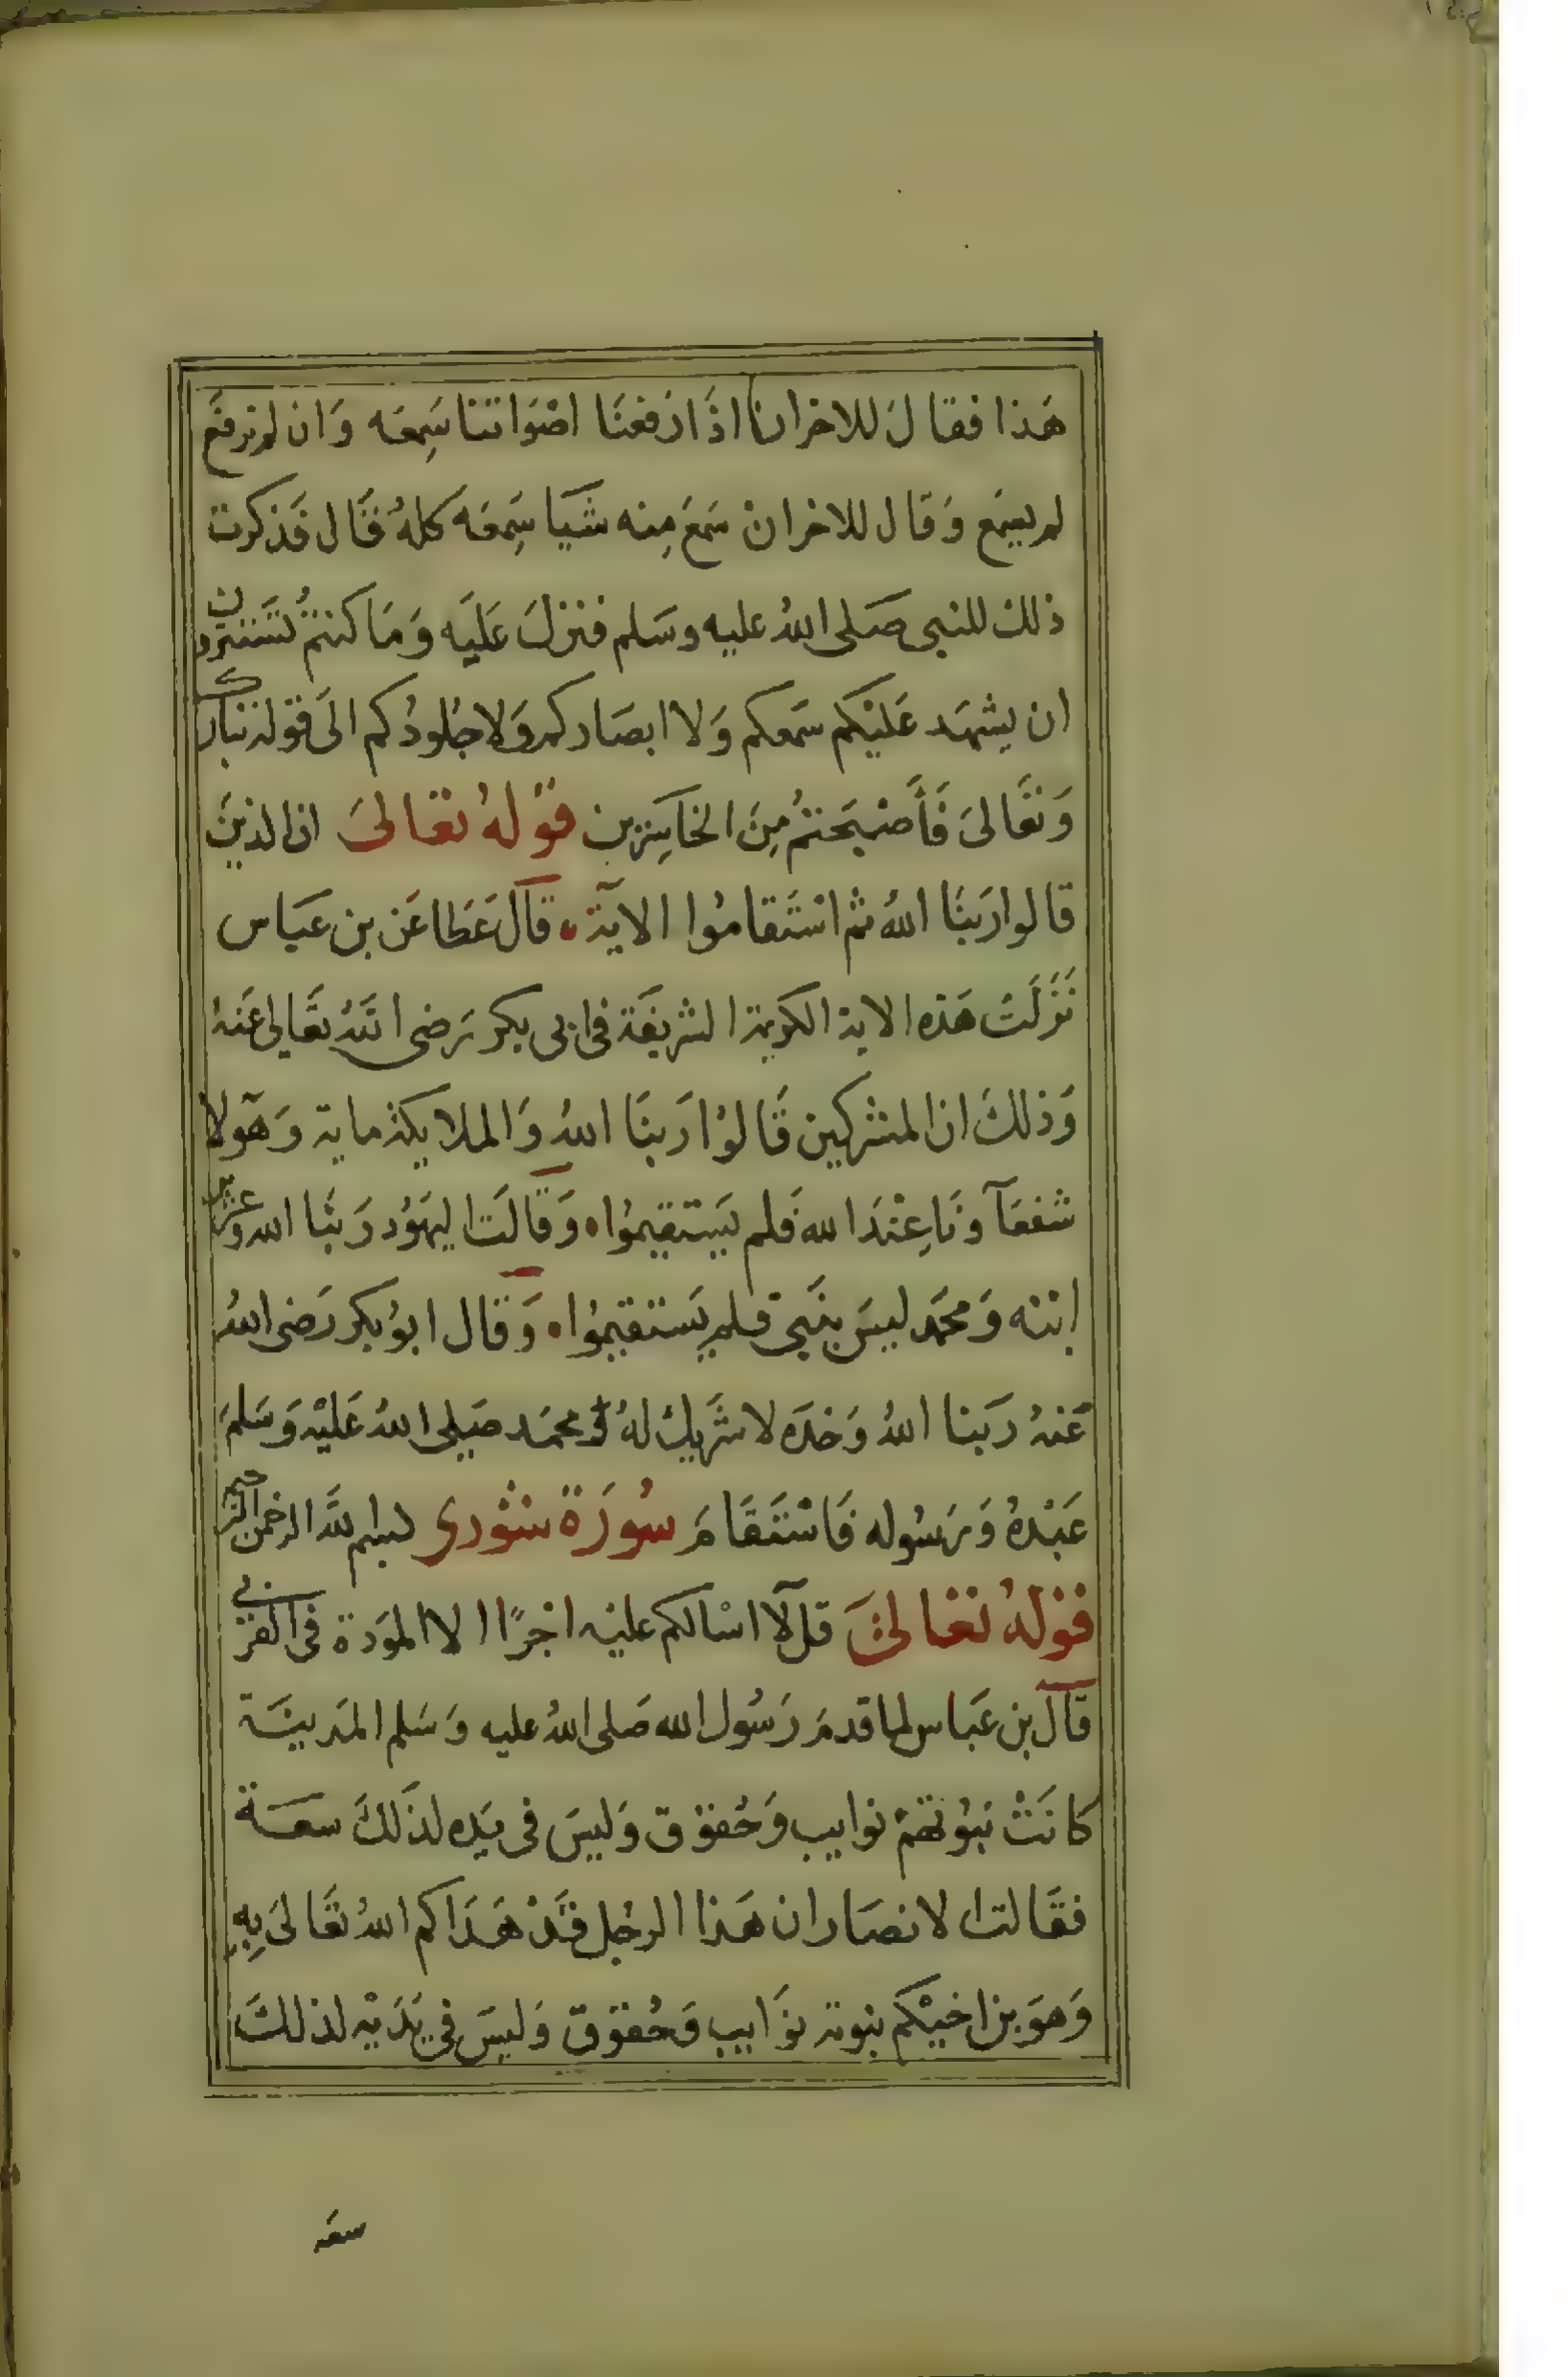 هَذا فقالَ للاخر انا اذَا رَفعنَا اصْوَاتنا سَمِعَه وَان لم نرفع
لم يسمَع وَقال للاخر ان سَمعَ مِنه شَيا سَمِعَه كلهُ قَال فَذكرت
ذلك للنبى صَلى اللهُ عليه وسَلم فنزلَ عَليَه وَمَا كنتمْ تَسْتترون
ان يشهَد عَليْكم سَمعكم وَلا ابصَاركم وَلا جُلودُكم الى قوله تبارك
وَتعَالىَ فَأَصْبَحتمُ مِنَ الخاسِرين قوْلهُ تعَالىَ ان الذينَ
قالوا رَبنَا اللهُ ثم اسْتَقامُوا الاية قالَ عَطا عَن بن عَباس
نَزَلَتْ هَذه الاية الكريمة الشريفَة فى ابى بكر رَضى اللهُ تعَالى عَنهُ
وَذلكَ ان المشركين قَالوْا رَبنَا اللهُ وَالملايكة بناته وَهَولا
شفعَآونَا عِنْدَ الله فَلم يَستقيموُا وَقالَت اليَهوُد رَبنَا الله وعزير
ابنه وَمحَمد ليسَ بنَبى فلم يَستقيموُا وَقال ابوُ بكر رَضى اللهُ
عَنهُ رَبنا اللهُ وَحْدَه لا شَريك لهُ وَمحمَد صَلى اللهُ عَليْه وَسَلمَ
عَبْدهُ وَرَسُوله فَاسْتَقَامَ سُورَة شورى بسم لله الرحمن الرحيم
قوْلهُ تعَالىَ قل لآ اسْالكم عليْه اجْرًا الا المَودَة فى القربى
قالَ بن عَباس لما قدمَ رَسُول الله صَلى اللهُ عليه وَسَلم المَدينَة
كانَتْ تنوُبهُ نوايب وَحُقوُق وَليسَ فى يَده لذَلكَ سعَة
فقَالت الانصَار ان هَذا الرجُل قَدْ هَدَاكم اللهُ تعَالىَ بِهِ
وَهوَ بن اختكم تنوبه نوَايب وَحُقوْق وَليسَ فى يَدَيْه لذلكَ
سعَه